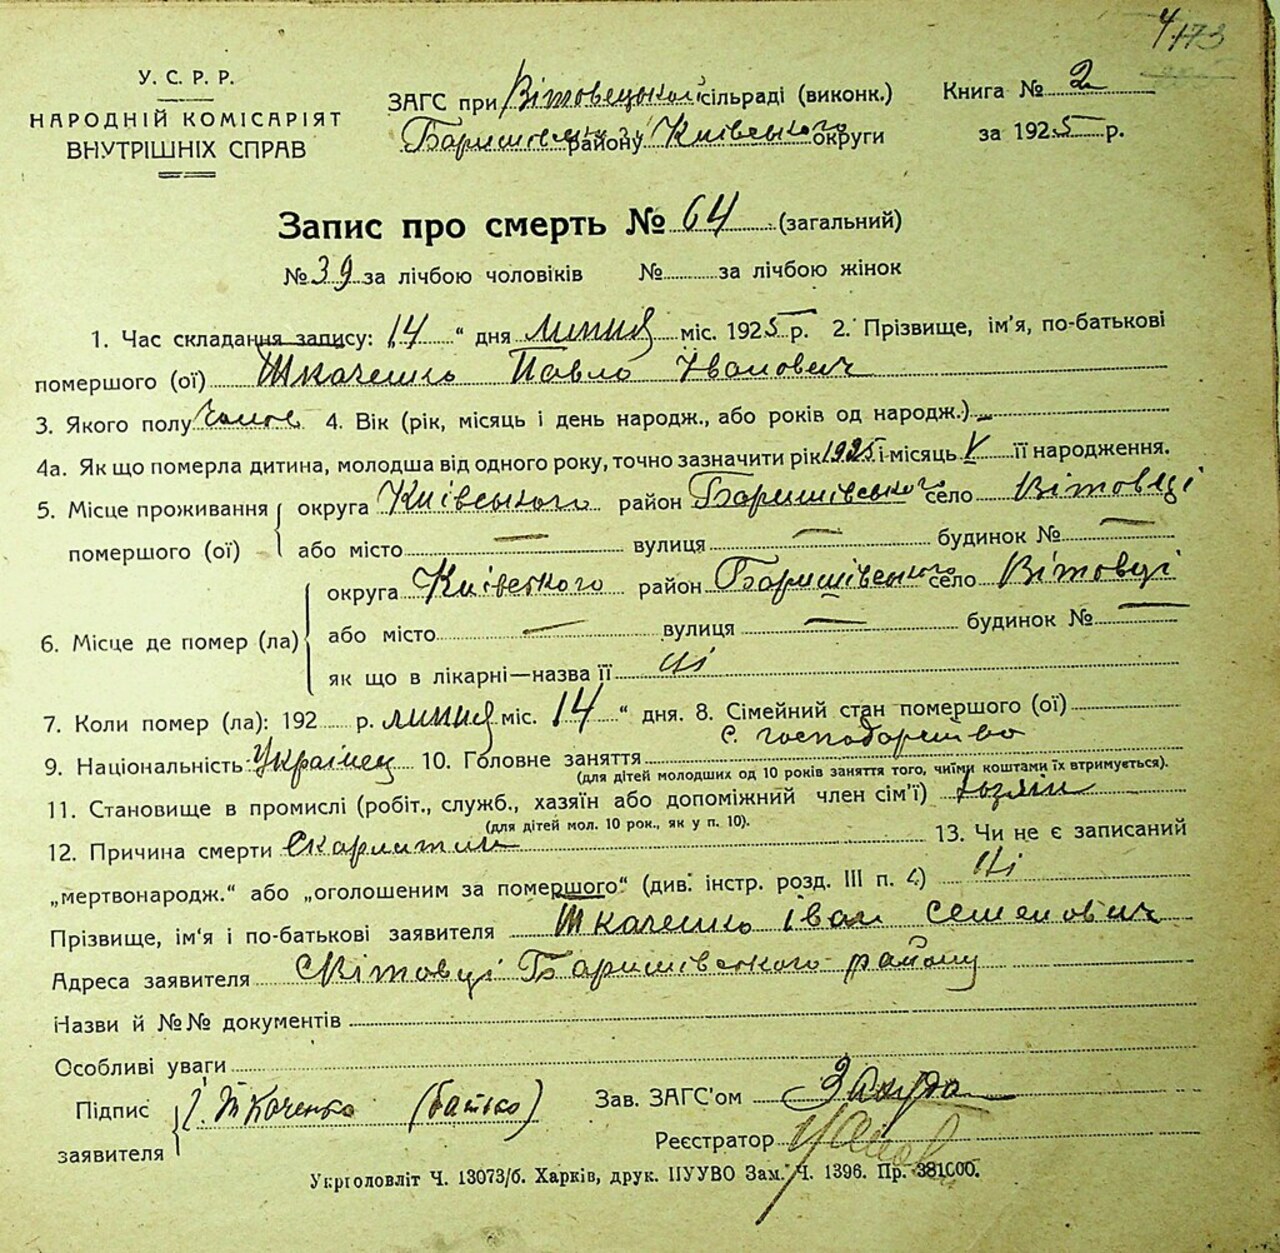 4 173
У. С. Р. Р.
НАРОДНІЙ КОМІСАРІЯТ
ВНУТРІШНІХ СПРАВ
ЗАГС при Вітовецькой сільраді (виконк.)
Баришівськ району Київського округи
Книга № 2
за 1925 р.
Запис про смерть № 64 (загальний)
№ 39 за лічбою чоловіків № за лічбою жінок
1. Час складання запису: 14 “ дня липня міс. 1925 р. 2. Прізвище, ім’я, по-батькові
помершого (ої) Ткаченко Павло Іванович
3. Якого полу Чолов 4. Вік (рік, місяць і день народж., або років од народж.) –
4а. Як що померла дитина, молодша від одного року, точно зазначити рік 1925 і місяць V її народження.
5. Місце проживання помершого (ої) округа Київського район Баришівського село Вітовці
або місто — вулиця — будинок № —
6. Місце де помер (ла) округа Київського район Баришівського село Вітовці
або місто — вулиця — будинок № —
як що в лікарні—назва її ні
7. Коли помер (ла): 192 р. липня міс. 14 “ дня. 8. Сімейний стан помершого (ої)
9. Національність Українец 10. Головне заняття с. господарство
(для дітей молодших од 10 років заняття того, чиїми коштами їх втримується).
11. Становище в промислі (робіт., служб., хазяїн або допоміжний член сім’ї) хазяїн
(для дітей мол. 10 рок., як у п. 10).
12. Причина смерти Скарлатин 13. Чи не є записаний
„мертвонародж.“ або „оголошеним за помершого“ (див. інстр. розд. III п. 4) ні
Прізвище, ім’я і по-батькові заявителя Ткаченко Іван Семенович
Адреса заявителя с. Вітовці Баришівского району
Назви й №№ документів
Особливі уваги
Підпис заявителя І. Ткаченко (батько)
Зав. ЗАГС’ом
Реєстратор
Укрголовліт Ч. 13073/б. Харків, друк. ПУУВО Зам. Ч. 1396. Пр. 381000.